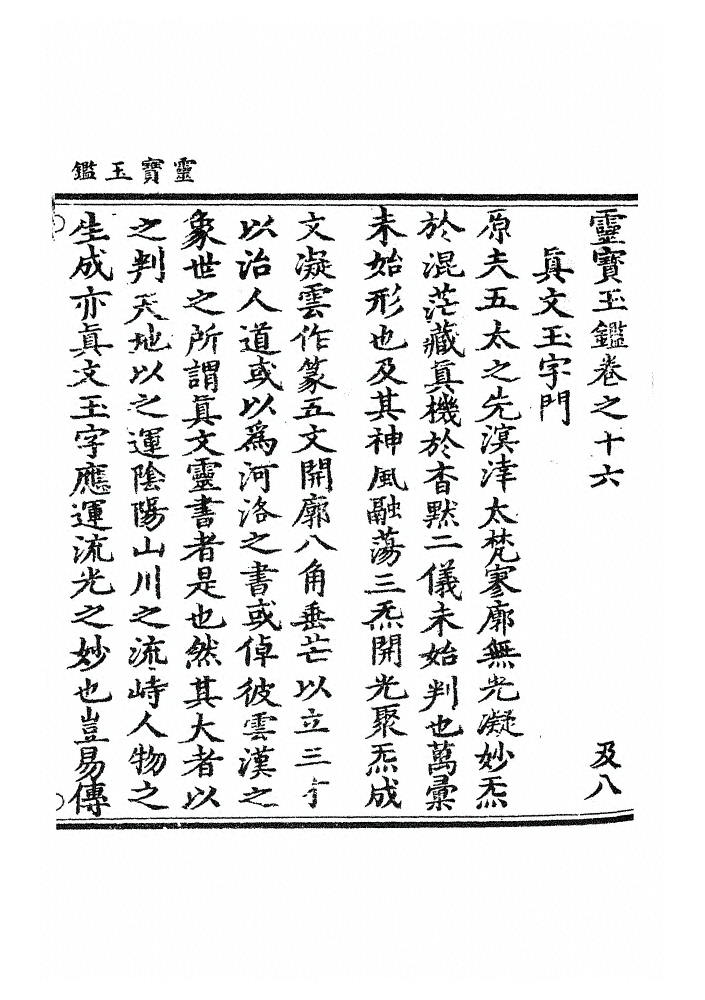 靈寶玉鑑
靈寶玉鑑卷之十六 及八
眞文玉字門
原夫五太之先溟涬太梵寥廓無光凝妙炁
於混茫藏眞機於杳默二儀未始判也萬彚
未始形也及其神風融蕩三炁開光聚炁成
文凝雲作篆五文開廓八角垂芒以立三才
以治人道或以爲河洛之書或倬彼雲漢之
象世之所謂眞文靈書者是也然其大者以
之判天地以之運陰陽山川之流峙人物之
生成亦眞文玉字應運流光之妙也豈易傳